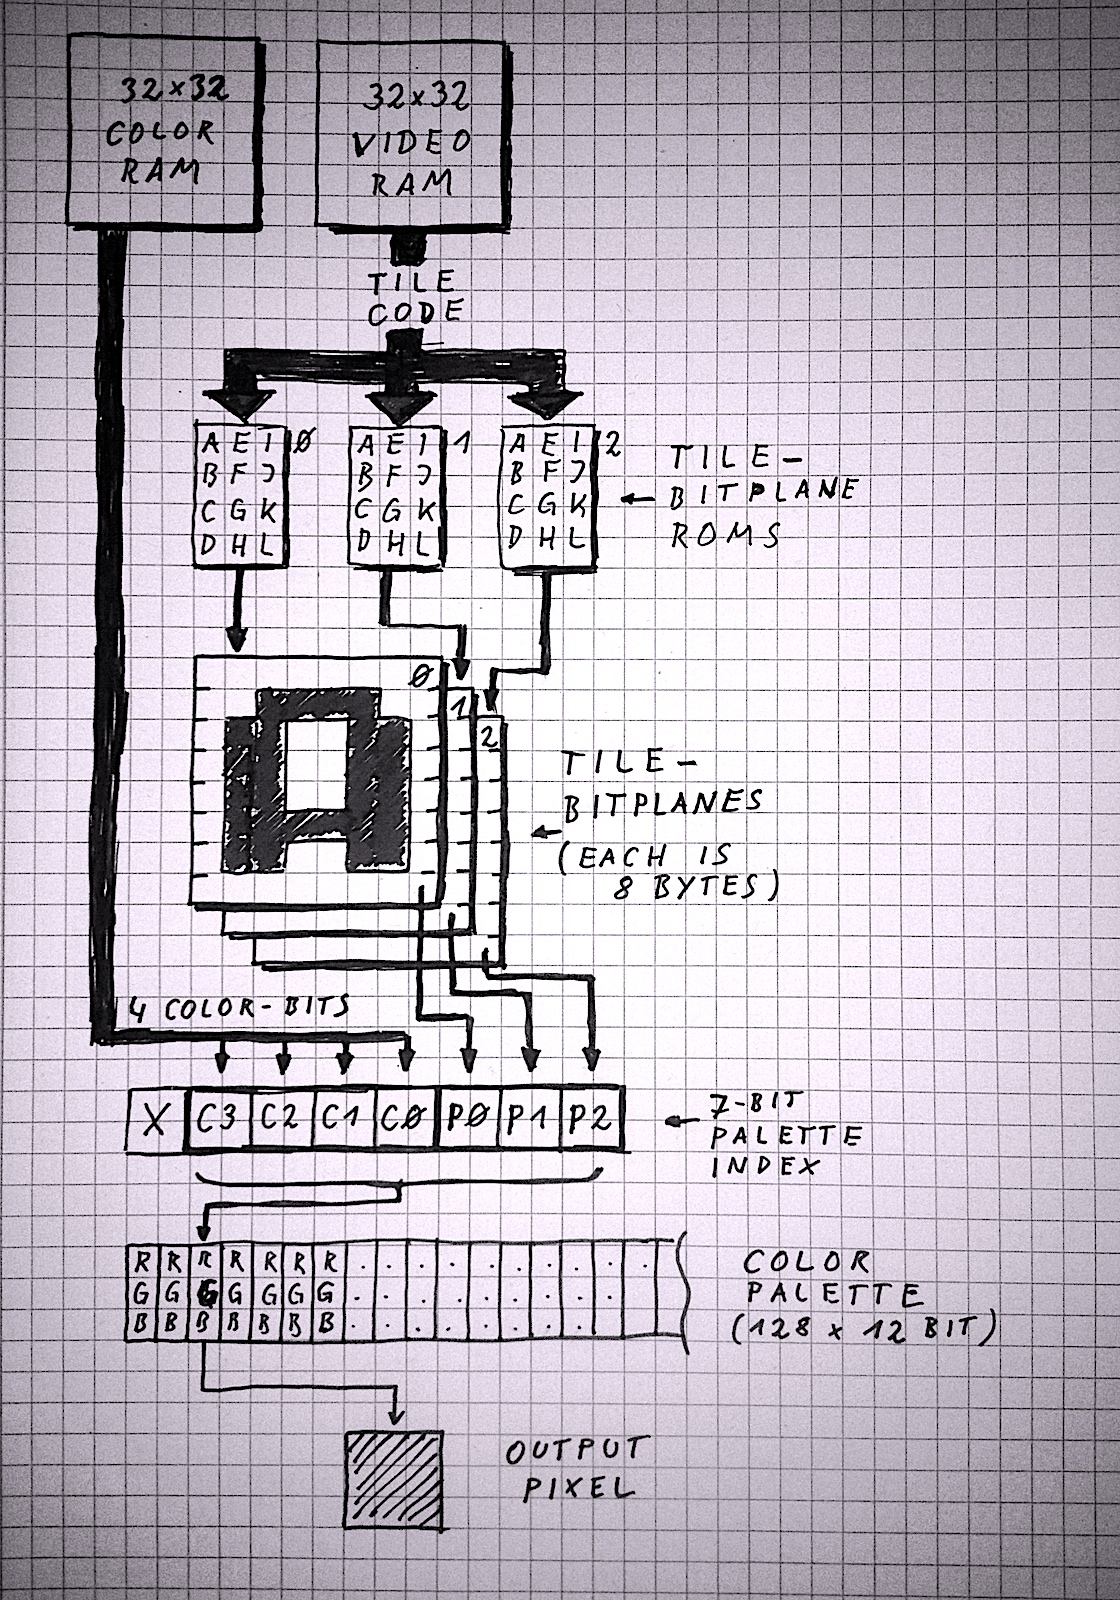 32x32
COLOR
RAM
32x32
VIDEO
RAM
TILE
CODE
A E I Ø
B F J
C G K
D H L
A E I 1
B F J
C G K
D H L
A E I 2
B F J
C G K
D H L
TILE-
BITPLANE
ROMS
Ø
1
2
TILE-
BITPLANES
(EACH IS
8 BYTES)
4 COLOR-BITS
X C3 C2 C1 CØ PØ P1 P2
7-BIT
PALETTE
INDEX
R R R R R R R . . . . . . . . . .
G G G G G G G . . . . . . . . . .
B B B B B B B . . . . . . . . .
COLOR
PALETTE
(128 x 12 BIT)
OUTPUT
PIXEL